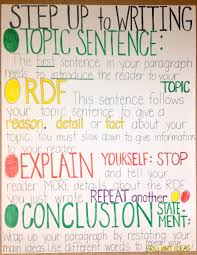 STEP UP to WRITING
TOPIC SENTENCE:
The first sentence in your paragraph
needs to introduce the reader to your
TOPIC.
RDF This sentence follows
your topic sentence to give a
reason, detail or fact about your
topic. You must slow down to give information
to
EXPLAIN YOURSELF: STOP
and tell your
reader MORE details about the RDF
you just wrote. REPEAT another
CONCLUSION STATE-
MENT:
Wrap up your paragraph by restating your
main ideas. Use different words to